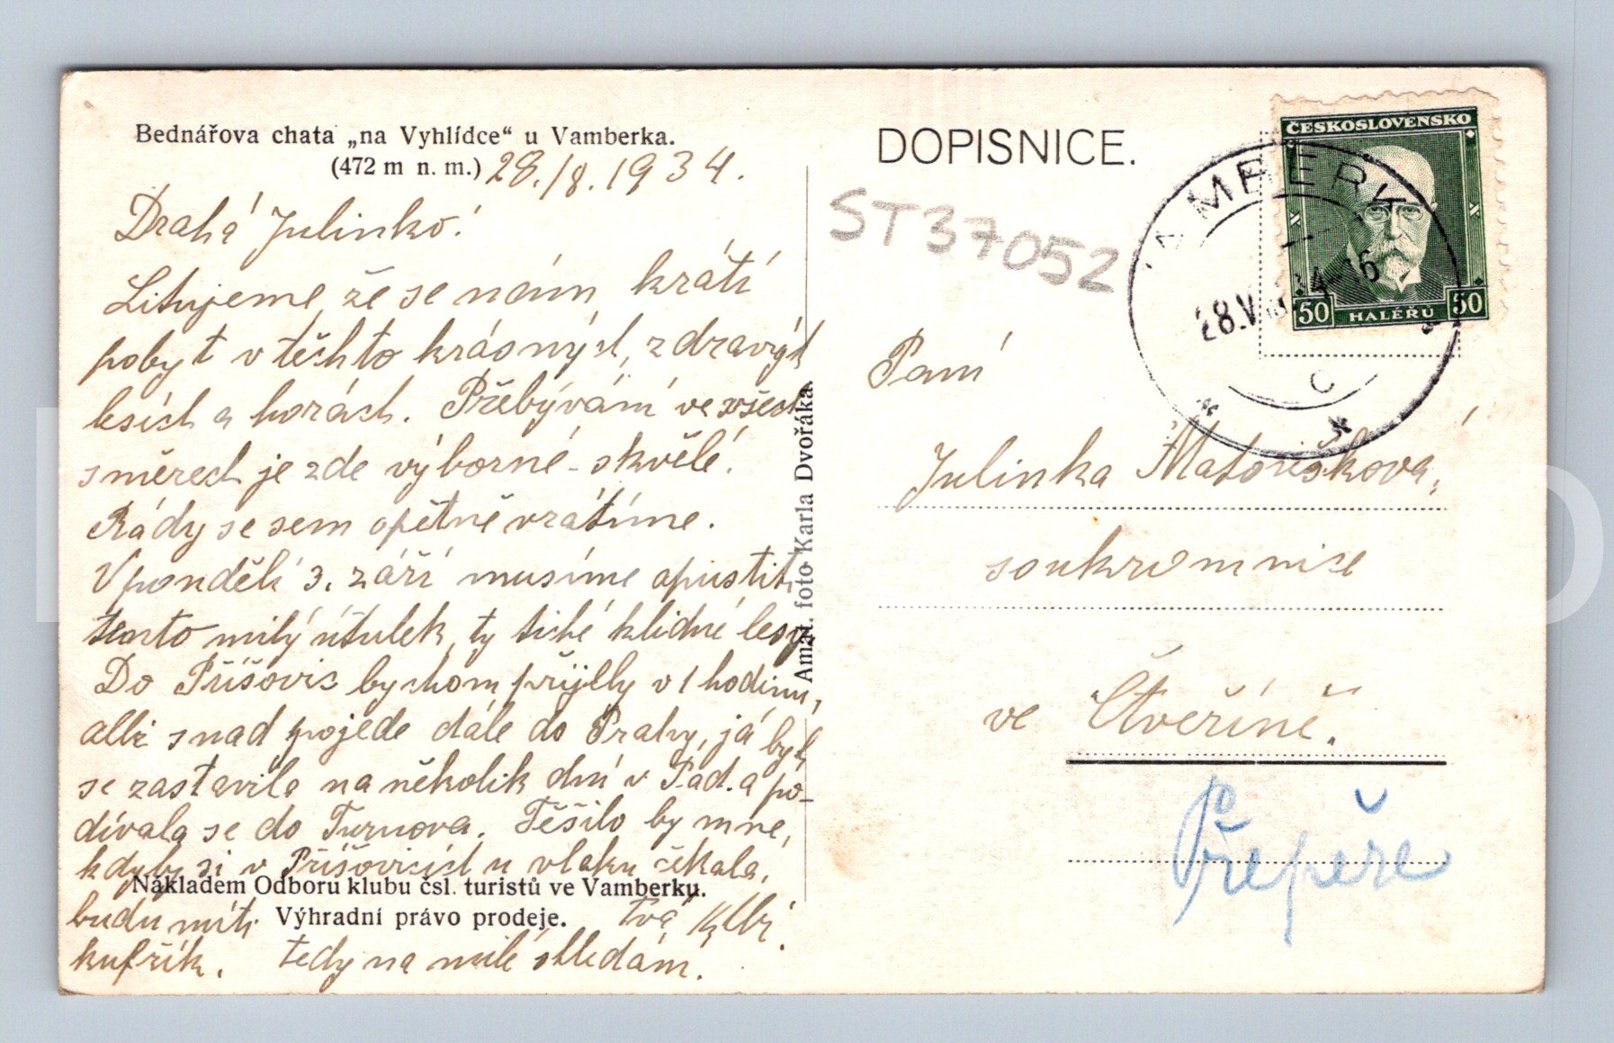 Bednářova chata „na Vyhlídce“ u Vamberka.
(472 m n. m.) 28./8. 1934.
Drahá Julinko!
Litujeme, že se nám krátí
pobyt v těchto krásných, zdravých
lesích a horách. Přebývání ve všech
směrech je zde výborné - skvělé.
Rády se sem opětně vrátíme.
V pondělí 3. září musíme opustiti
tento milý útulek, ty tiché klidné lesy.
Do Příšovic bychom přijely v 1 hodinu,
snad pojede dále do Prahy, já bych
se zastavila na několik dní v a po-
dívala se do Turnova. Těšilo by mne,
kdyby si v Příšovicích u vlaku čekala,
Nákladem Odboru klubu čsl. turistů ve Vamberku.
budu míti
Výhradní právo prodeje.
Tvá
kufřík. tedy na milé shledám.
Amat. foto Karla Dvořáka.
DOPISNICE.
ST37052
ČESKOSLOVENSKO
50 HALÉŘŮ 50
VAMBERK
28.VIII.34-16
C
Paní
Julinka
soukromnice
ve Čtveříně.
Přepeře